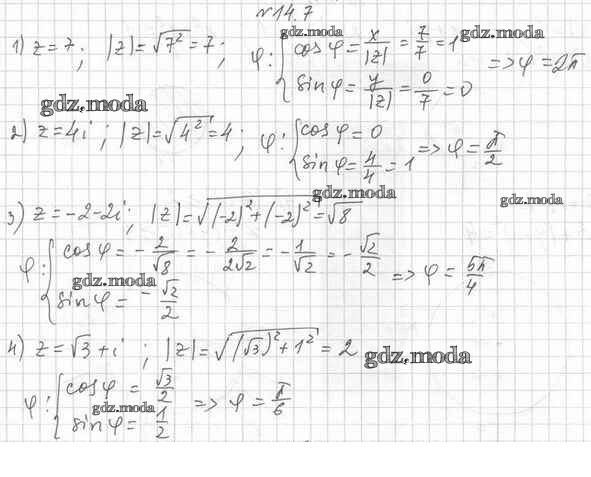 №14.7
gdz.moda gdz.moda
1) z = 7 ; |z| = √7² = 7 ; φ: { cos φ = x/|z| = 7/7 = 1
sin φ = y/|z| = 0/7 = 0 => φ = 2π
gdz.moda
2) z = 4i ; |z| = √4² = 4 ; φ: { cos φ = 0
sin φ = 4/4 = 1 => φ = π/2
gdz.moda gdz.moda
3) z = -2-2i ; |z| = √(-2)²+(-2)² = √8
φ: { cos φ = -2/√8 = -2/2√2 = -1/√2 = -√2/2
gdz.moda
sin φ = -√2/2 => φ = 5π/4
4) z = √3+i ; |z| = √(√3)²+1² = 2
gdz.moda
φ: { cos φ = √3/2
gdz.moda
sin φ = 1/2 => φ = π/6